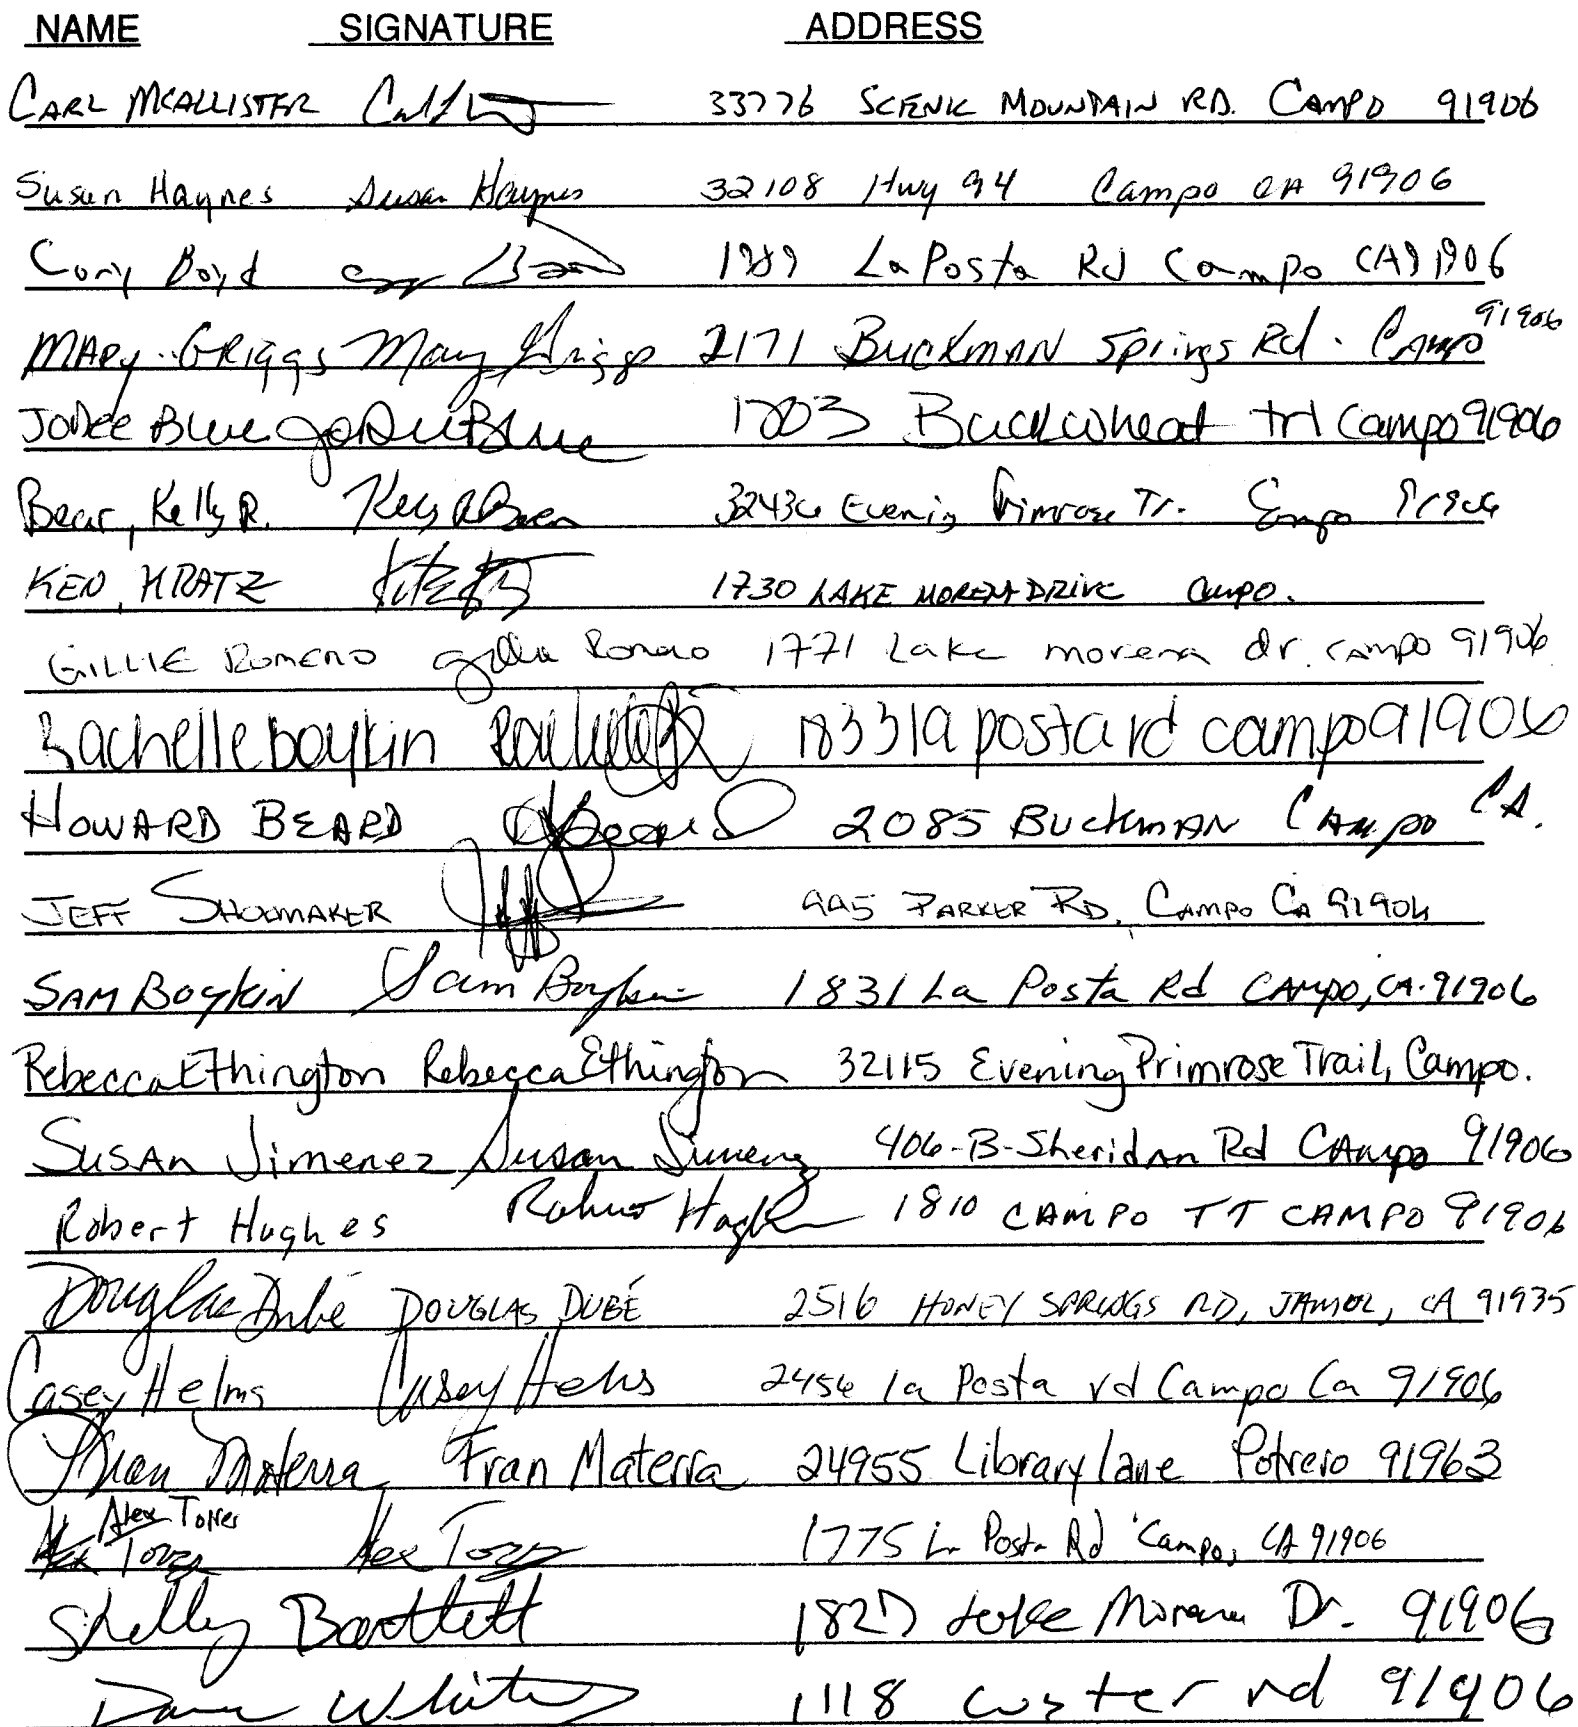 NAME SIGNATURE ADDRESS
CARL MCALLISTER 33776 SCENIC MOUNTAIN RD. CAMPO 91906
Susan Haynes Susan Haynes 32108 Hwy 94 Campo CA 91906
Cory Boyd 1989 La Posta Rd Campo CA 91906
MARY GRIGGS Mary Griggs 2171 BUCKMAN springs Rd. CAMPO 91906
JoDee Blue JoDee Blue 1703 Buckwheat trl Campo 91906
Bear, Kelly R. Kelly R Bear 32436 Evening Primrose Tr. Campo 91906
KEN KRATZ 1730 LAKE MORENA DRIVE CAMPO.
GILLIE ROMERO Gillie Romero 1771 Lake morena dr. CAMPO 91906
Rachelle boykin 1833 la posta rd campo 91906
HOWARD BEARD 2085 BUCKMAN CAMPO CA.
JEFF SHOEMAKER 995 PARKER RD, CAMPO CA 91906
SAM BOYKIN Sam Boykin 1831 La Posta Rd CAMPO, CA. 91906
Rebecca Ethington Rebecca Ethington 32115 Evening Primrose Trail, Campo.
SUSAN Jimenez Susan Jimenez 406-B-Sheridan Rd CAMPO 91906
Robert Hughes Robert Hughes 1810 CAMPO TT CAMPO 91906
Douglas Dubé DOUGLAS DUBÉ 2516 HONEY SPRINGS RD, JAMUL, CA 91935
Casey Helms Casey Helms 2456 la Posta rd Campo Ca 91906
Fran Materra Fran Materra 24955 Library lane Potrero 91963
Alex Torres
Alex Torres 1775 La Posta Rd Campo, CA 91906
Shelly Bartlett 1827 Lake Morena Dr. 91906
Dave White 1118 Custer rd 91906